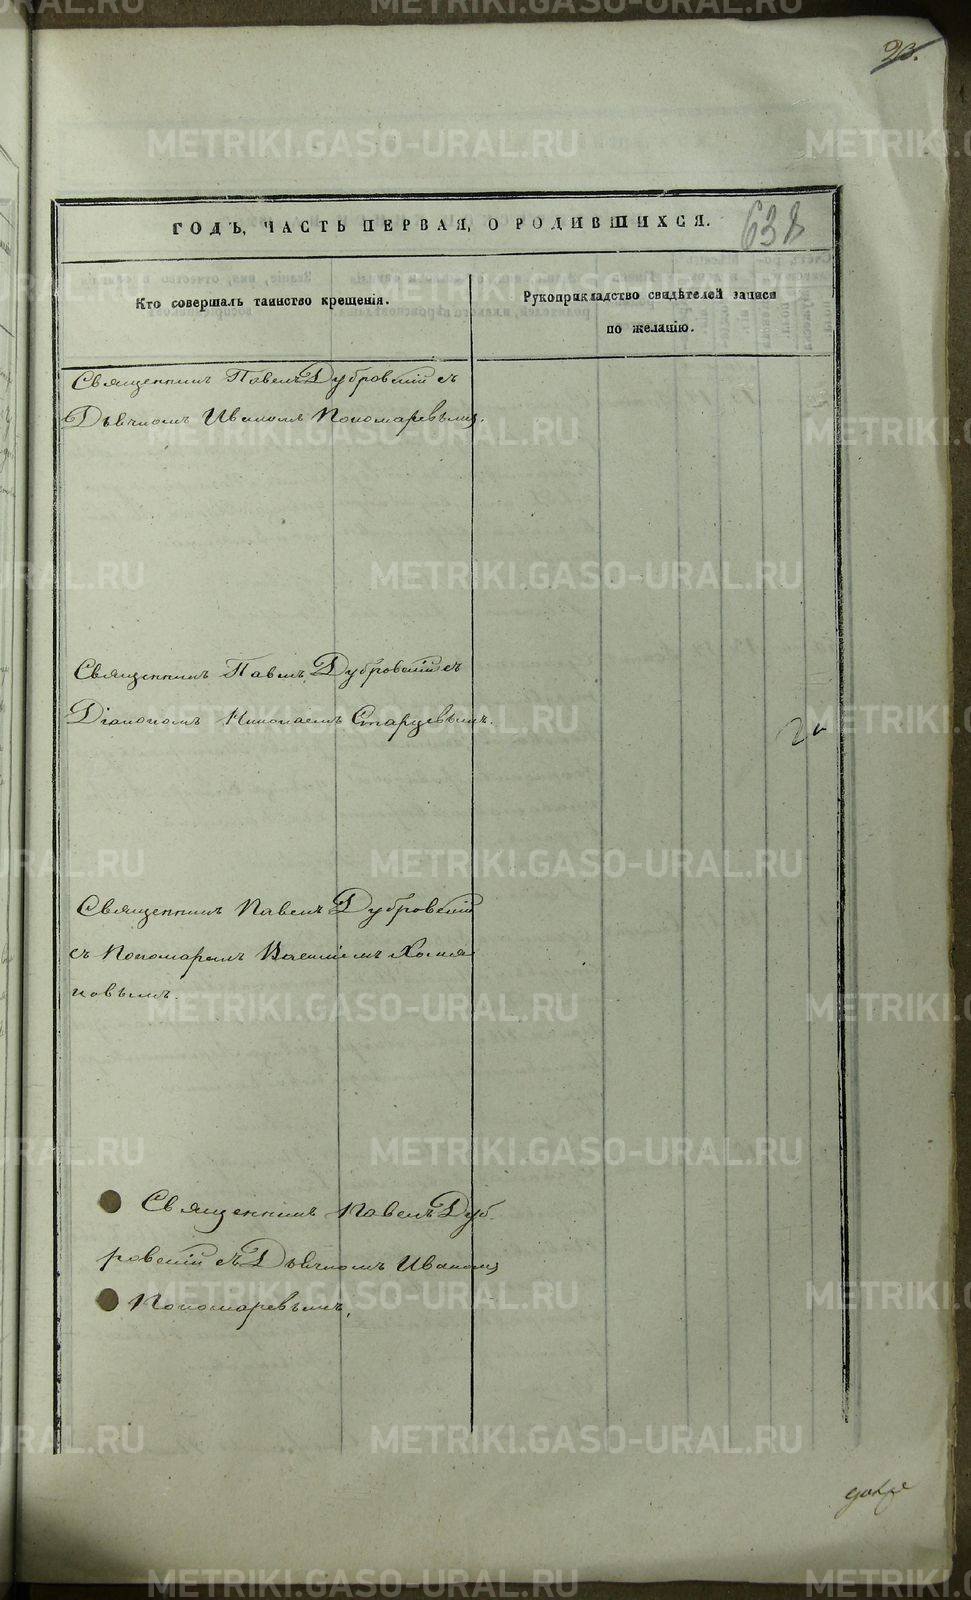 ГОДЪ, ЧАСТЬ ПЕРВАЯ, О РОДИВШИХСЯ.
638
Кто совершалъ таинство крещенія.
Рукоприкладство свидѣтелей записи
по желанію.
Священникъ Павелъ Дубровскій съ
Дьячкомъ Иваномъ Пономаревымъ.
Священникъ Павелъ Дубровскій съ
Діакономъ Николаемъ Старцевымъ.
Священникъ Павелъ Дубровскій
съ Пономаремъ Василіемъ Хомя
ковымъ.
Священникъ Павелъ Дуб
ровскій съ Дьячкомъ Иваномъ
Пономаревымъ.
METRIKI.GASO-URAL.RU